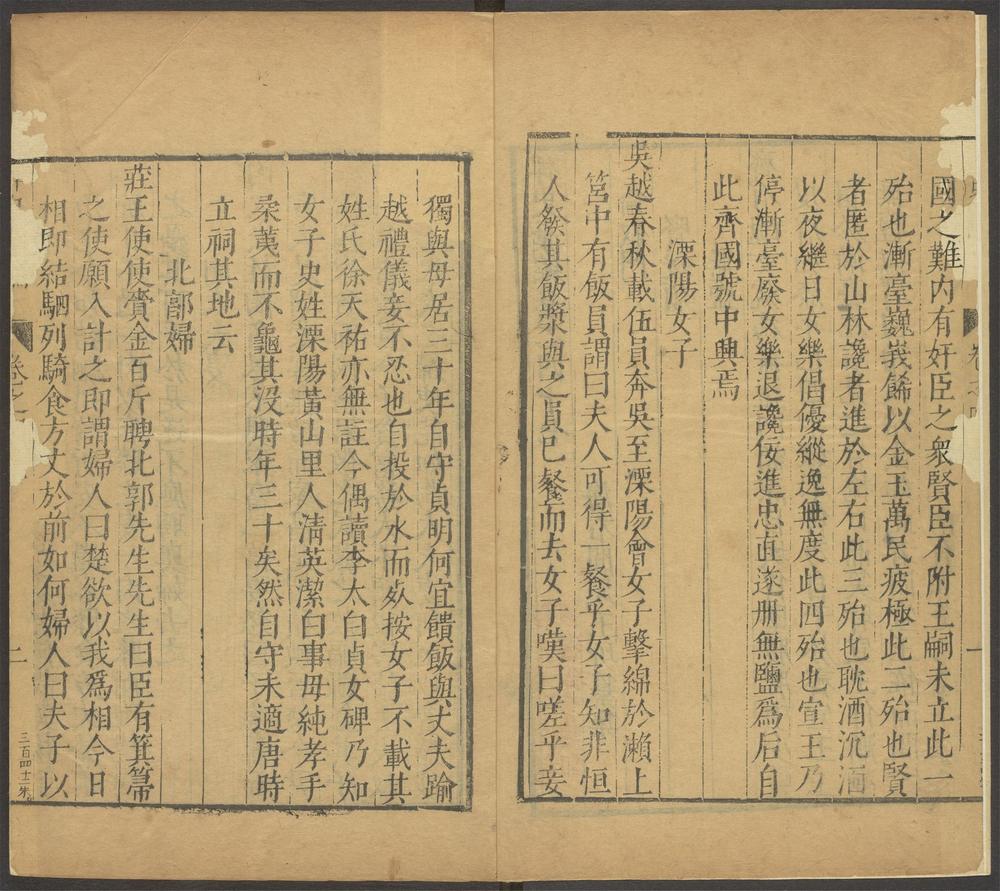 國之難內有奸臣之衆賢臣不附王嗣未立此一
殆也漸臺巍峩餙以金玉萬民疲極此二殆也賢
者匿於山林讒者進於左右此三殆也耽酒沉湎
以夜繼日女樂倡優縱逸無度此四殆也宣王乃
停漸臺廢女樂退讒佞進忠直遂册無鹽爲后自
此齊國號中興焉
溧陽女子
吳越春秋載伍員奔吳至溧陽會女子擊綿於瀨上
筥中有飯員謂曰夫人可得一餐乎女子知非恒
人發其飯漿與之員已餐而去女子嘆曰嗟乎妾
獨與母居三十年自守貞明何宜饋飯與丈夫踰
越禮儀妾不忍也自投於水而死按女子不載其
姓氏徐天祐亦無註今偶讀李太白貞女碑乃知
女子史姓溧陽黃山里人清英潔白事母純孝手
柔荑而不龜其没時年三十矣然自守未適唐時
立祠其地云
北郭婦
莊王使使賫金百斤聘北郭先生先生曰臣有箕箒
之使願入計之即謂婦人曰楚欲以我爲相今日
相即結駟列騎食方丈於前如何婦人曰夫子以
卷之
二
三百四十二朱